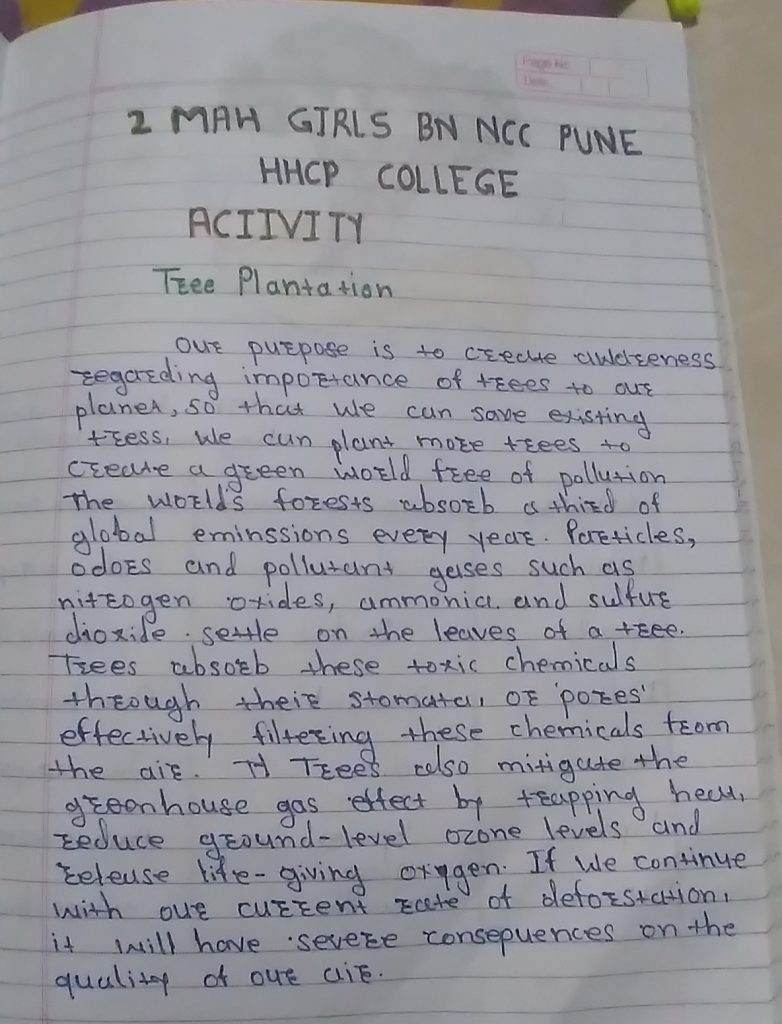 Page No.
Date
2 MAH GIRLS BN NCC PUNE
HHCP COLLEGE
ACIIVITY
Tree Plantation
Our purpose is to create awareness
regarding importance of trees to our
planet, so that we can save existing
tress, we can plant more trees to
create a green world free of pollution
The world's forests absorb a third of
global eminssions every year. Particles,
odors and pollutant gases such as
nitrogen oxides, ammonia and sulfur
dioxide settle on the leaves of a tree.
Trees absorb these toxic chemicals
through their stomata, or 'pores'
effectively filtering these chemicals from
the air. Trees also mitigate the
greenhouse gas effect by trapping heat,
reduce ground-level ozone levels and
release life-giving oxygen. If we continue
with our current rate of deforstation,
it will have severe consepuences on the
quality of our air.